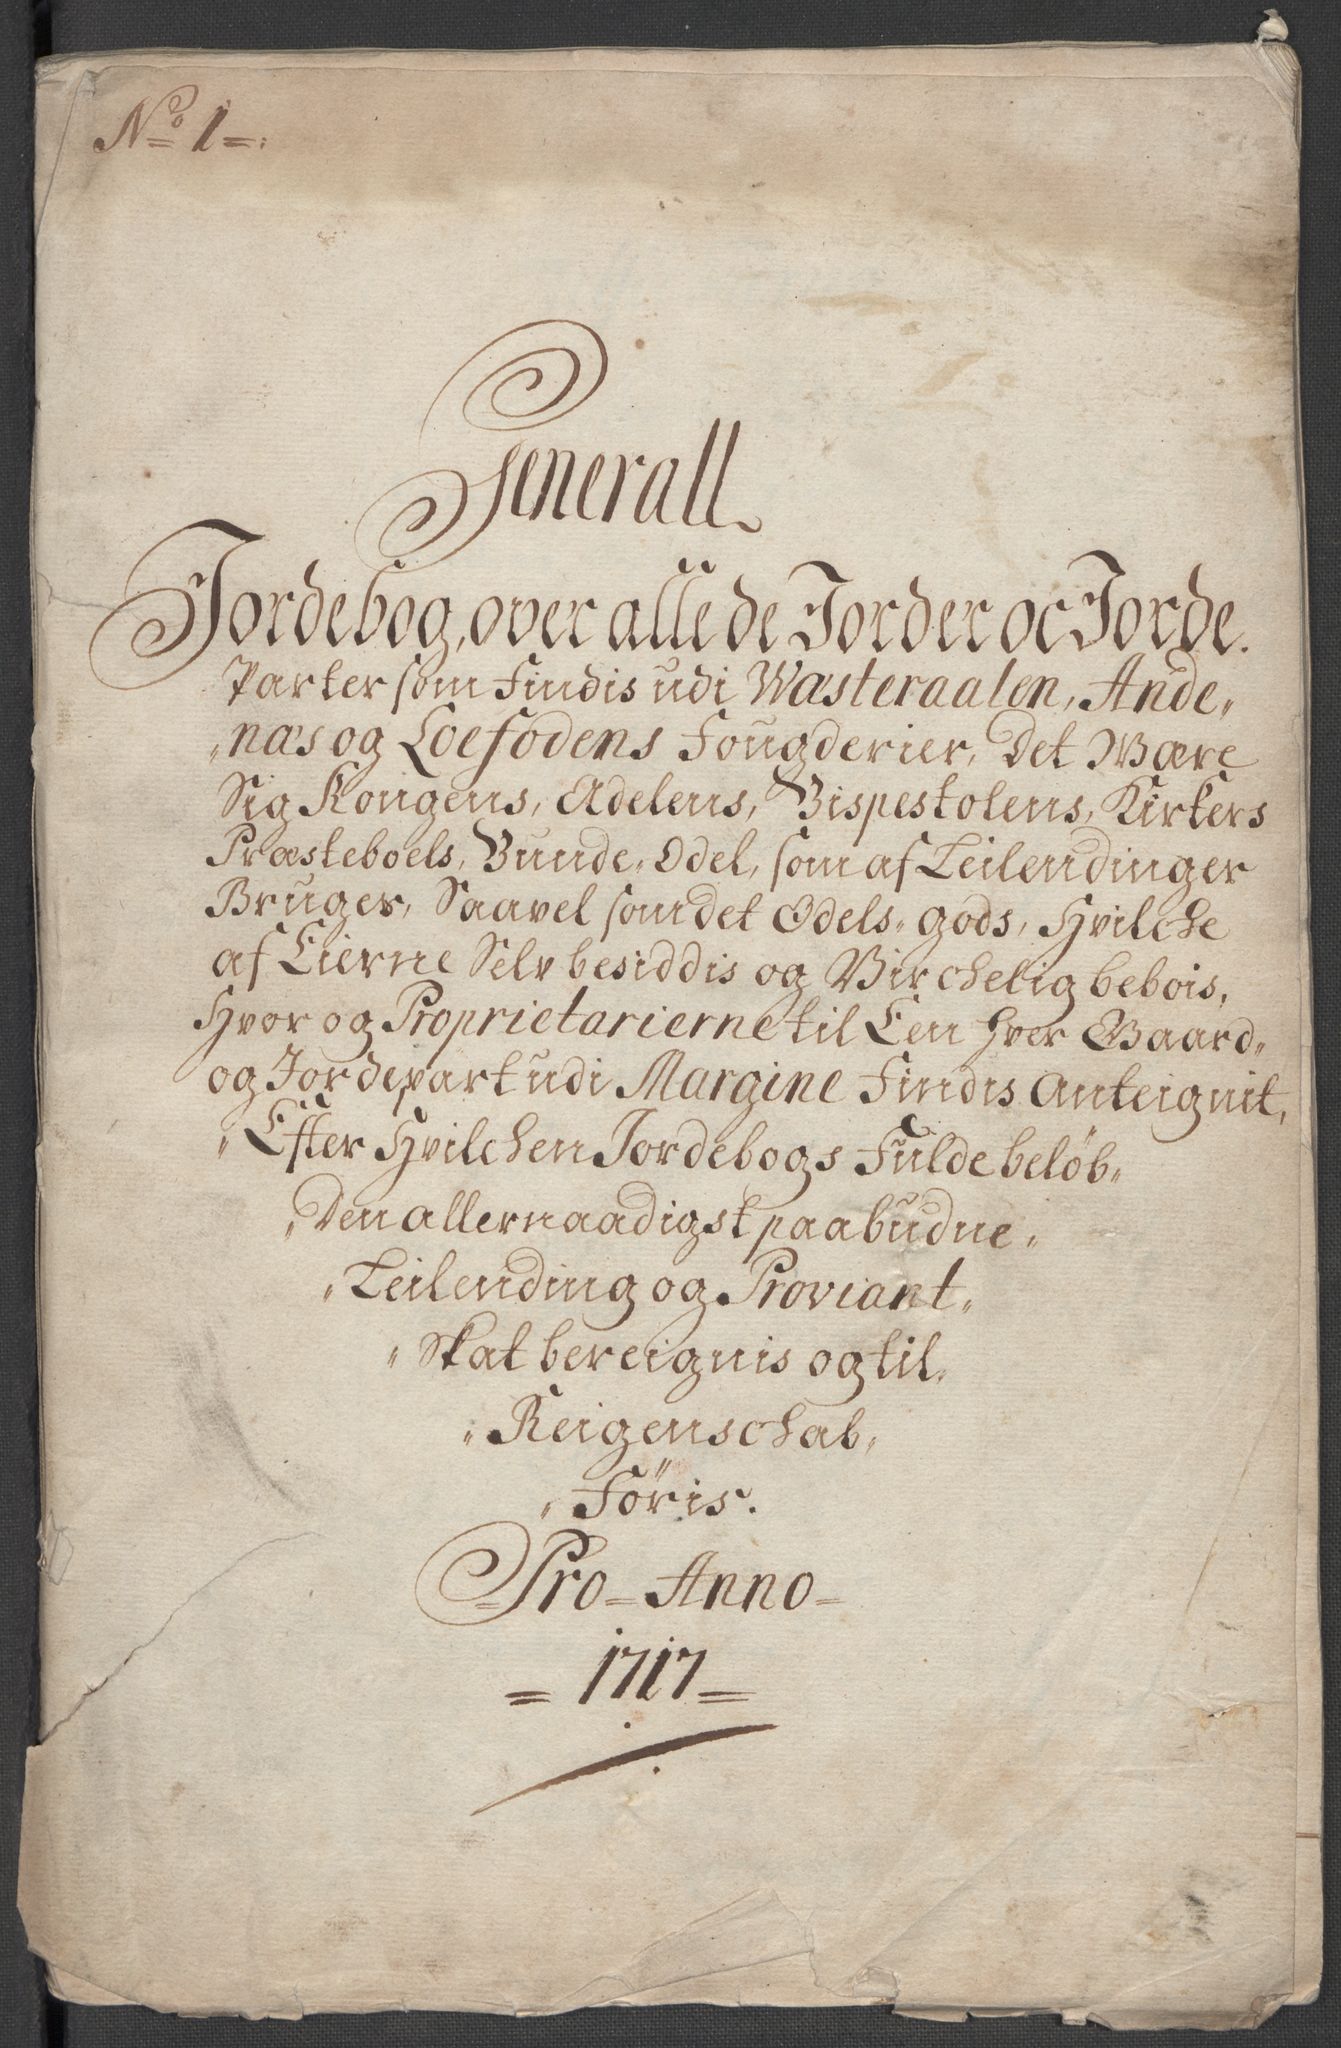 No 1
Generall
Jordebog, over alle de Jorder oc Jorde.
Parter som Findis udi Wæsteraalen, Ande„
„næs og Loefodens Fougderier, Det Være
Sig Kongens, Adelens, Bispestolens, Kirkers
Præsteboels, Bunde„ Odel, som af Leilendinger
Bruges, Saavel som det Odels„ gods, Hvilche
af Eierne Selv besiddis og Virchelig bebois,
Hvor og Proprietarierne til Een hver Gaard„
og Jordepart udi Margine Findis Anteignit,
„Efter Hvilchen Jordebogs Fulde beløb„
„Den allernaadigst paabudne„
„Leilending og Proviant„
„Skat bereignis og til„
„Reigenschab„
„Føris.
Pro = Anno =
= 1717 =